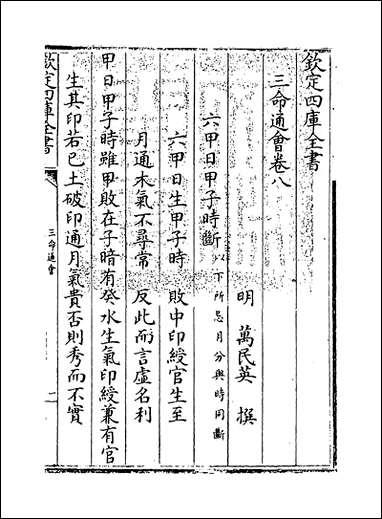 欽定四庫全書
三命通會卷八
明 萬民英 撰
六甲日甲子時斷以下所忌月分與時同斷
六甲日生甲子時 敗中印綬官生至
月通木氣不尋常 反此而言虛名利
甲日甲子時雖甲敗在子暗有癸水生氣印綬兼有官
生其印若已土破印通月氣貴否則秀而不實
欽定四庫全書
三命通會